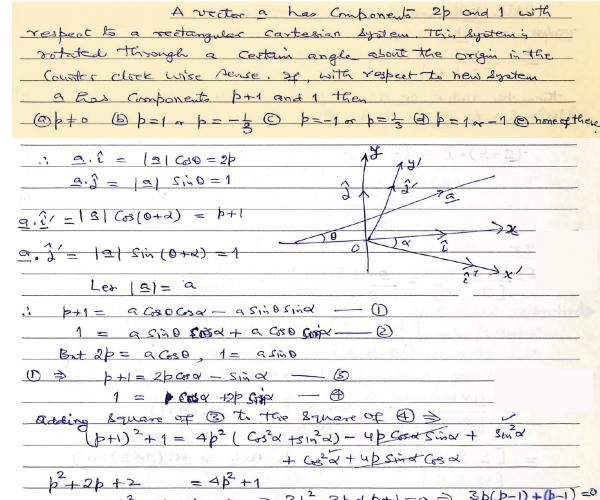 A vector a has components 2p and 1 with
respect to a rectangular Cartesian system. This system is
rotated through a certain angle about the origin in the
counter clock wise sense. If, with respect to new system
a has components p+1 and 1 then
(a) p≠0 (b) p=1 or p=-1/3 (c) p=-1 or p=1/3 (d) p=1 or -1 (e) none of these
∴ a.î = |a| cosθ = 2p
a.ĵ = |a| sinθ = 1
a.î' = |a| cos(θ+α) = p+1
a.ĵ' = |a| sin(θ+α) = 1
Let |a| = a
y
y'
ĵ
ĵ'
a
θ
O
α
î
x
î'
x'
∴ p+1 = a cosθ cosα − a sinθ sinα — ①
1 = a sinθ cosα + a cosθ sinα — ②
But 2p = a cosθ, 1 = a sinθ
① ⇒ p+1 = 2p cosα − sinα — ③
1 = cosα + 2p sinα — ④
Adding square of ③ to the square of ④ ⇒
(p+1)² + 1 = 4p² (cos²α + sin²α) − 4p cosα sinα + sin²α
+ cos²α + 4p sinα cosα
p² + 2p + 2 = 4p² + 1
⇒ 3p(p−1)+(p−1)=0